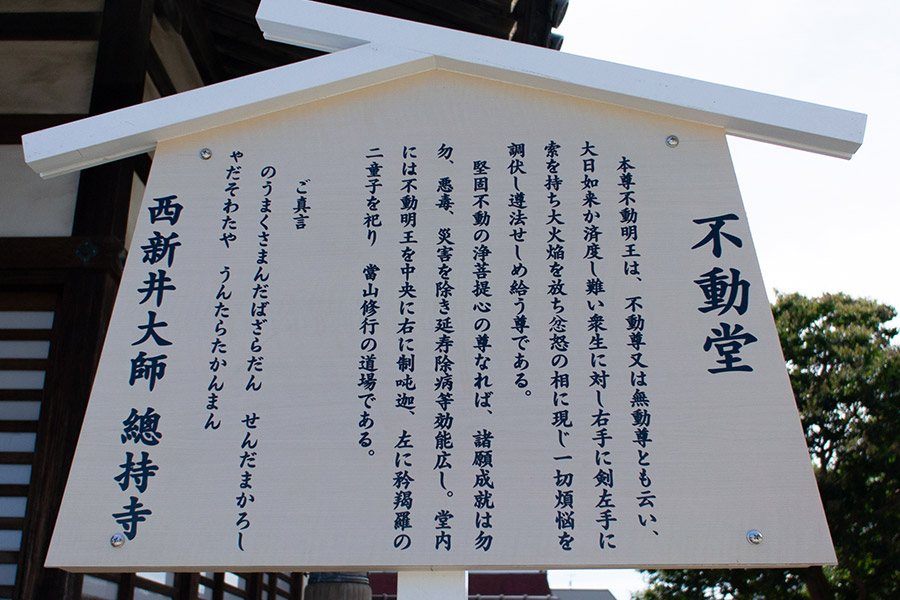 不動堂
本尊不動明王は、不動尊又は無動尊とも云い、
大日如来か済度し難い衆生に対し右手に剣左手に
索を持ち大火焔を放ち忿怒の相に現じ一切煩悩を
調伏し遵法せしめ給う尊である。
堅固不動の浄菩提心の尊なれば、諸願成就は勿
勿、悪毒、災害を除き延寿除病等効能広し。堂内
には不動明王を中央に右に制吨迦、左に矜羯羅の
二童子を祀り 當山修行の道場である。
ご真言
のうまくさまんだばざらだん せんだまかろし
やだそわたや うんたらたかんまん
西新井大師 總持寺